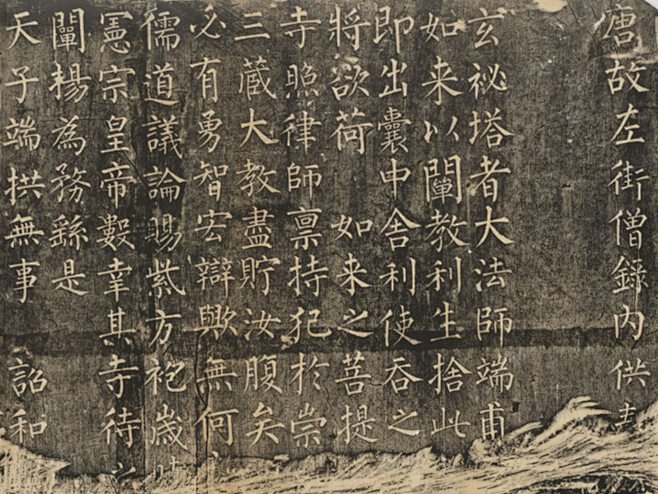 唐故左街僧錄內供
玄祕塔者大法師端甫
如来以闡教利生捨此
即出囊中舍利使吞之
將欲荷 如来之菩提
寺照律師禀持犯於崇
三蔵大教盡貯汝腹矣
必有勇智宏辯歟無何
儒道議論賜紫方袍歳時
憲宗皇帝數幸其寺待
闡揚為務繇是
天子端拱無事 詔和